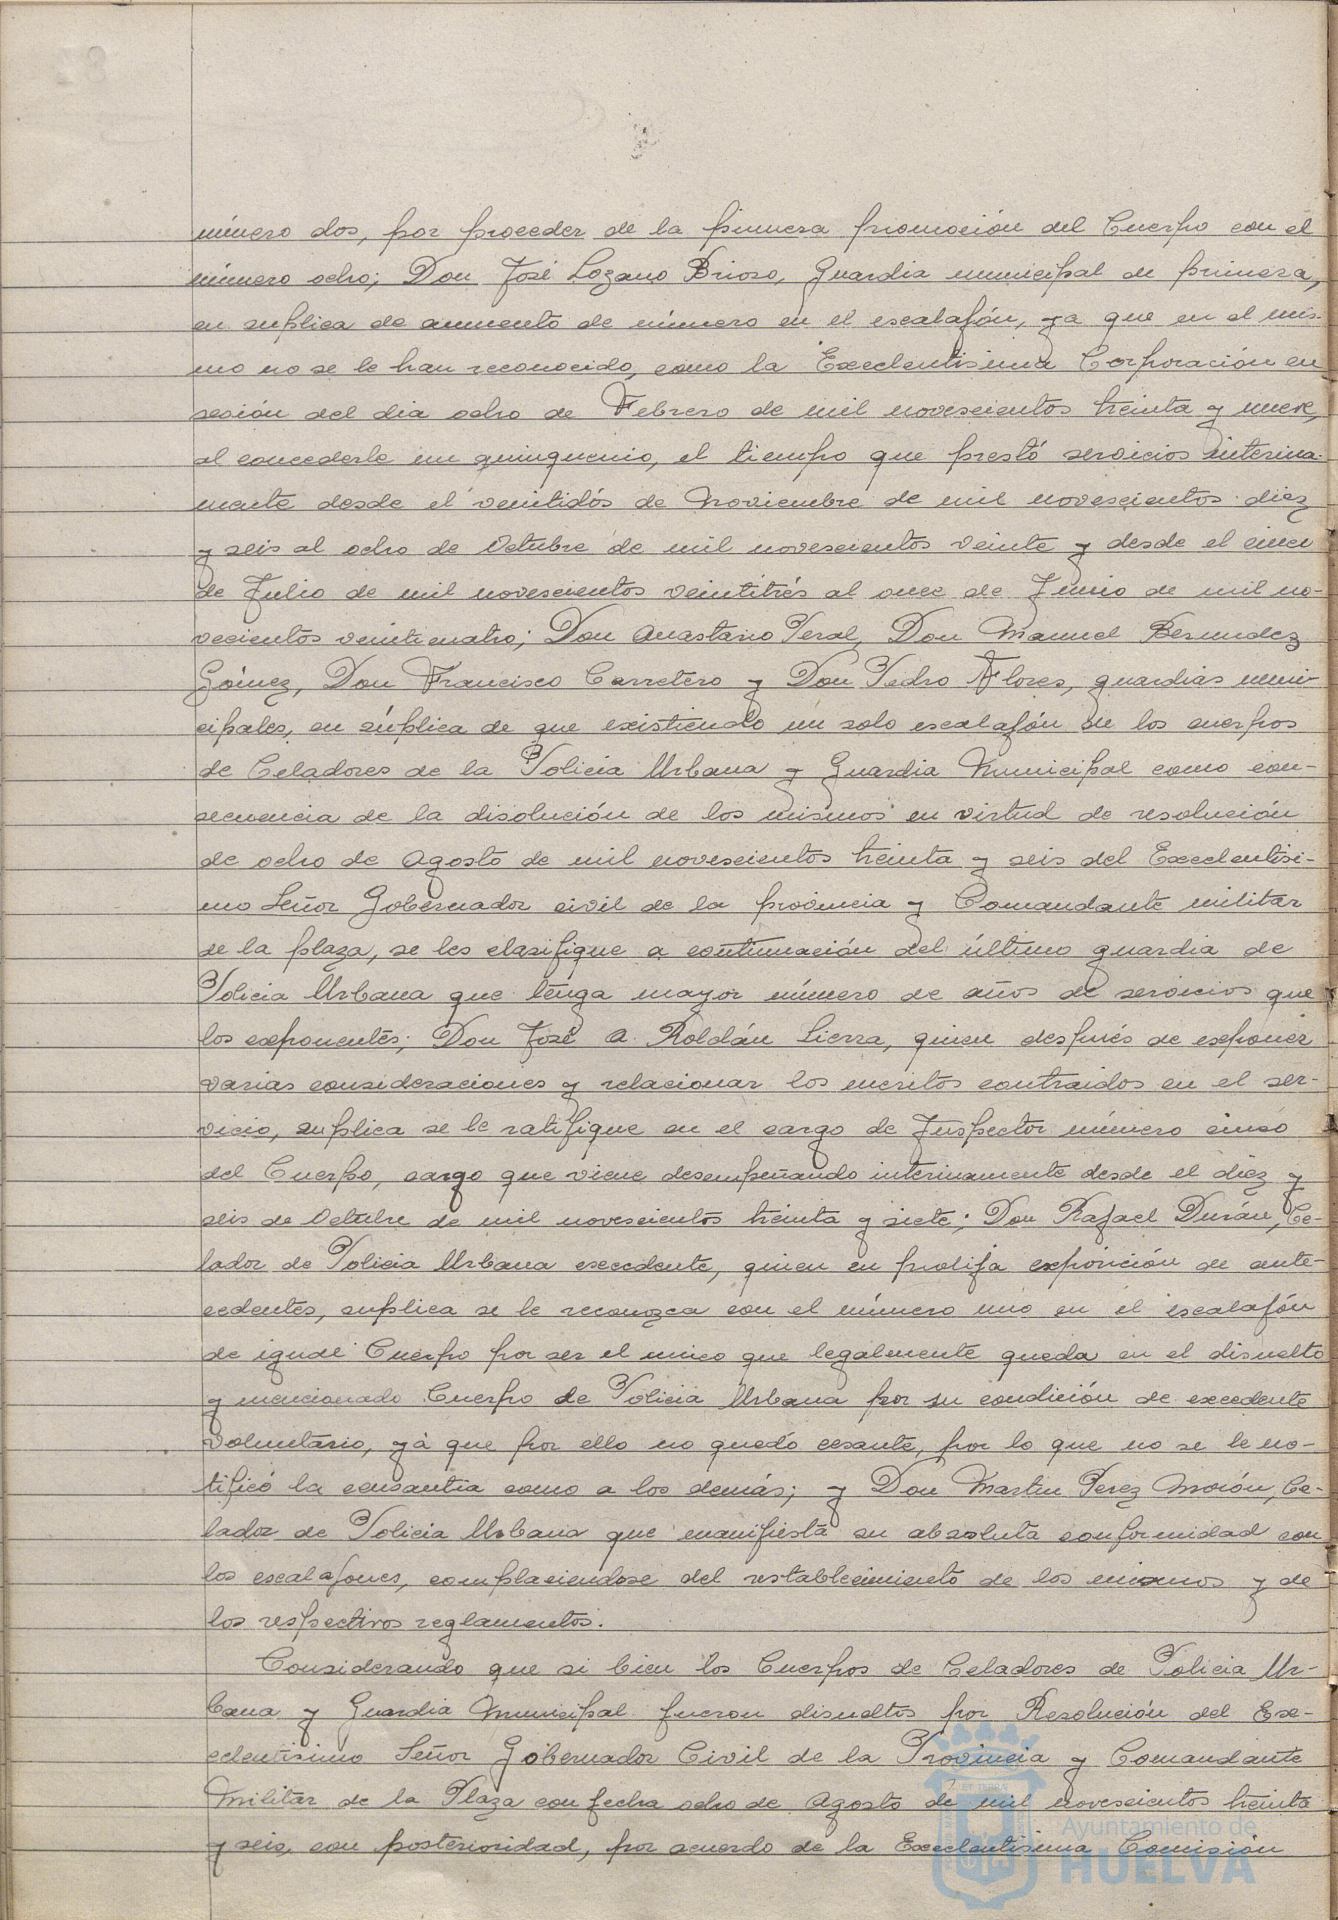 número dos, por proceder de la primera promoción del Cuerpo con el
número ocho; Don José Lozano Brioso, Guardia municipal de primera,
en suplica de aumento de número en el escalafón, ya que en el mis-
mo no se le han reconocido, como la Excelentísima Corporación en
sesión del dia ocho de Febrero de mil novescientos treinta y nueve,
al concederle un quinquenio, el tiempo que prestó servicios interina-
mente desde el veintidós de Noviembre de mil novescientos diez
y seis al ocho de Octubre de mil novescientos veinte y desde el cinco
de Julio de mil novescientos veintitrés al once de Junio de mil no-
vecientos veinticuatro; Don Anastasio Peral, Don Manuel Bermudez
Gómez, Don Francisco Carretero y Don Pedro Flores, guardias muni-
cipales, en súplica de que existiendo un solo escalafón de los cuerpos
de Celadores de la Policia Urbana y Guardia Municipal como con-
secuencia de la disolución de los mismos en virtud de resolución
de ocho de Agosto de mil novescientos treinta y seis del Excelentisi-
mo Señor Gobernador civil de la provincia y Comandante militar
de la plaza, se les clasifique a continuación del último guardia de
Policia Urbana que tenga mayor número de años de servicios que
los exponentes; Don José A. Roldán Sierra, quien después de exponer
varias consideraciones y relacionar los meritos contraidos en el ser-
vicio, suplica se le ratifique en el cargo de Inspector número cinco
del Cuerpo, cargo que viene desempeñando interinamente desde el diez y
seis de Octubre de mil novescientos treinta y siete; Don Rafael Durán, Ce-
lador de Policia Urbana excedente, quien en prolija exposición de ante-
cedentes, suplica se le reconozca con el número uno en el escalafón
de igual Cuerpo por ser el unico que legalmente queda en el disuelto
y mencionado Cuerpo de Policia Urbana por su condición de excedente
voluntario, ya que por ello no quedó cesante, por lo que no se le no-
tificó la censantia como a los demás; y Don Martin Perez Morón, Ce-
lador de Policia Urbana que manifiesta su absoluta conformidad con
los escalafones, complaciendose del restablecimiento de los mismos y de
los respectivos reglamentos.
Considerando que si bien los Cuerpos de Celadores de Policia Ur-
bana y Guardia Municipal fueron disueltos por Resolución del Exc-
celentisimo Señor Gobernador Civil de la Provincia y Comandante
Militar de la Plaza con fecha ocho de Agosto de mil novescientos treinta
y seis, con posterioridad, por acuerdo de la Excelentisima Comisión
Ayuntamiento de
HUELVA